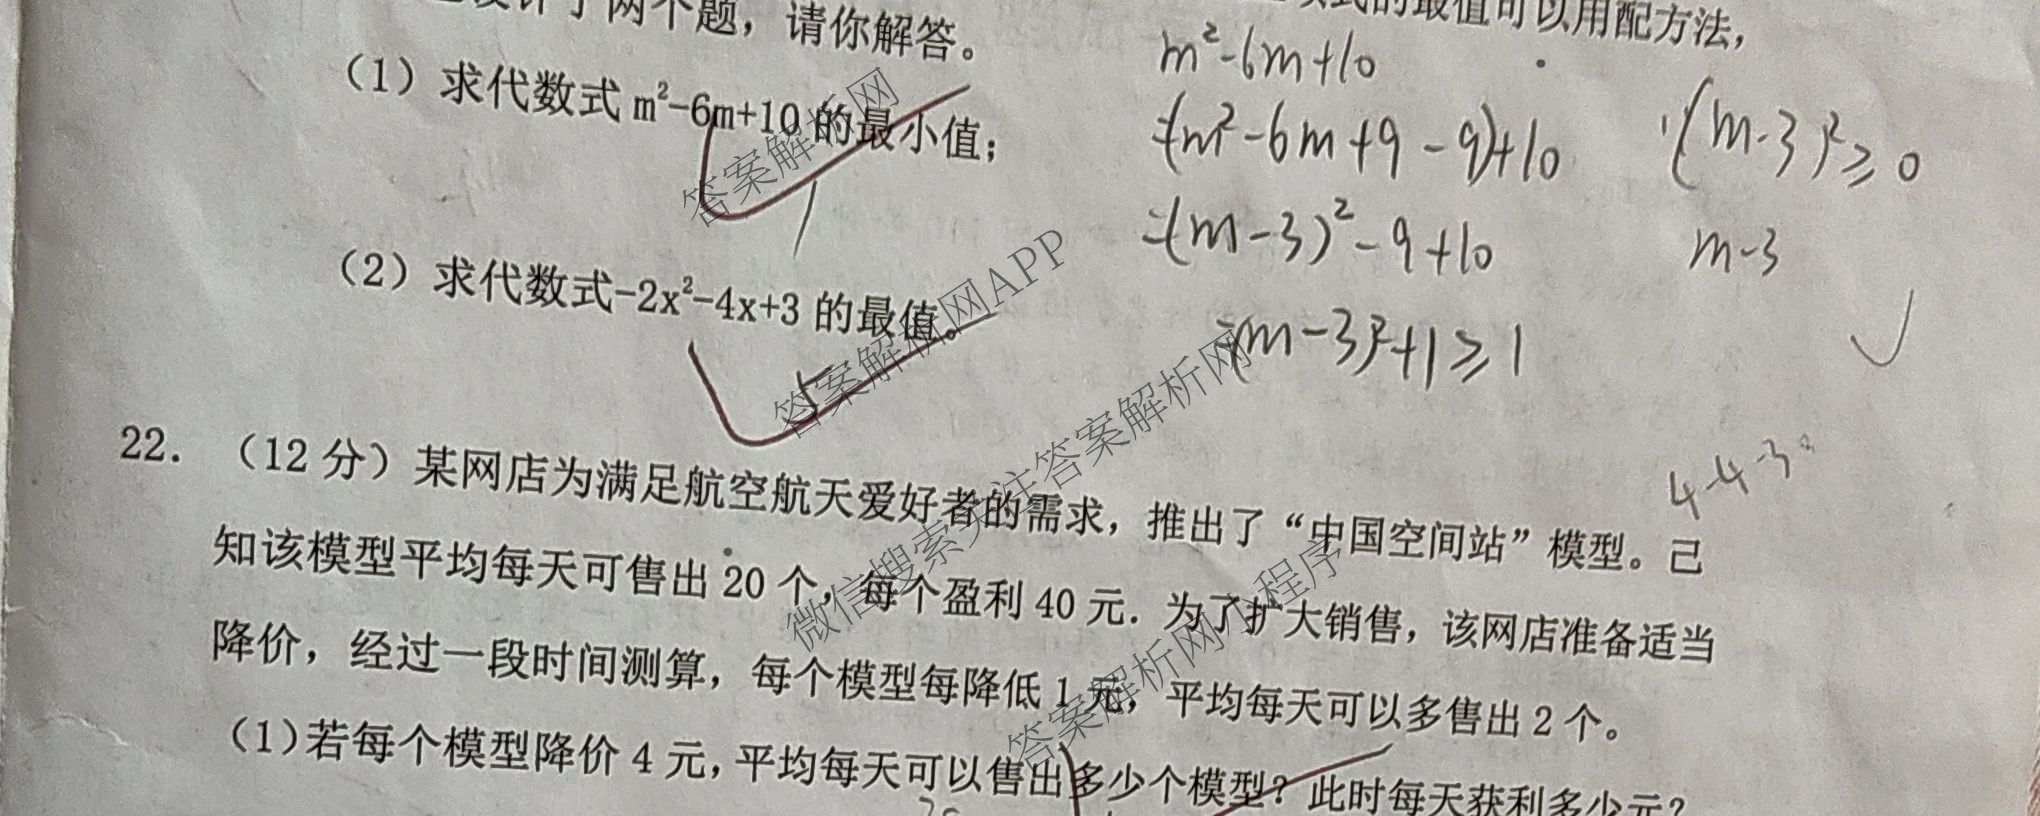 了两个题，请你解答。
的最值可以用配方法，
（1）求代数式 m²-6m+10 的最小值；
（2）求代数式-2x²-4x+3 的最值。
m²-6m+10
=(m²-6m+9-9)+10
=(m-3)²-9+10
=(m-3)²+1≥1
(m-3)²≥0
m-3
5
4-4-3
22. （12 分）某网店为满足航空航天爱好者的需求，推出了“中国空间站”模型。已
知该模型平均每天可售出 20 个，每个盈利 40 元. 为了扩大销售，该网店准备适当
降价，经过一段时间测算，每个模型每降低 1 元，平均每天可以多售出 2 个。
(1)若每个模型降价 4 元，平均每天可以售出多少个模型？此时每天获利多少元？
答案解析网
答案解析网APP
微信搜索关注答案解析网
答案解析网小程序